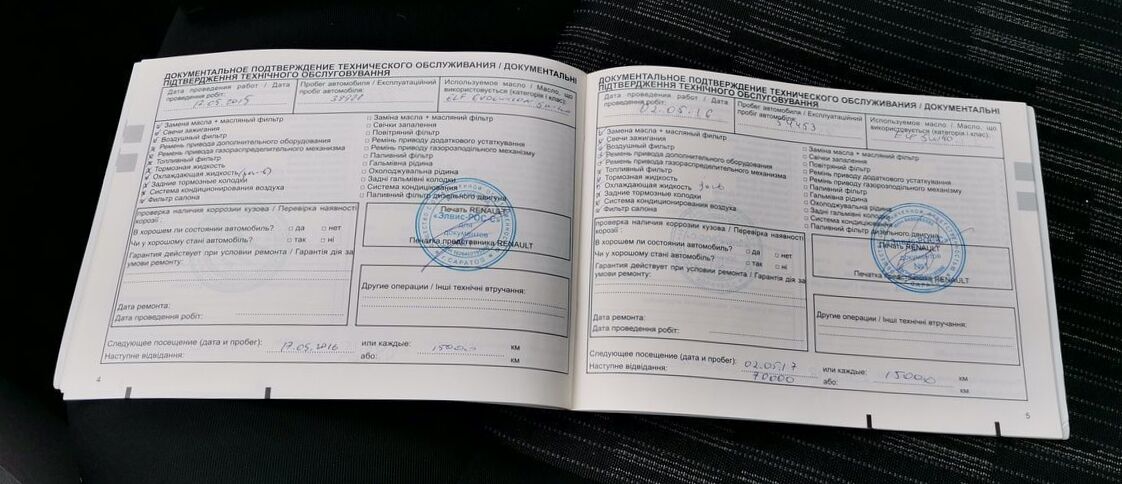 ДОКУМЕНТАЛЬНОЕ ПОДТВЕРЖДЕНИЕ ТЕХНИЧЕСКОГО ОБСЛУЖИВАНИЯ / ДОКУМЕНТАЛЬНІ
ПІДТВЕРДЖЕННЯ ТЕХНІЧНОГО ОБСЛУГОВУВАННЯ
Дата проведения работ / Дата
проведення робіт:
Пробег автомобиля / Експлуатаційний
пробіг автомобіля:
Используемое масло / Масло, що
використовується (категорія і клас):
ELF
Замена масла + масляный фильтр
Свечи зажигания
Воздушный фильтр
Ремень привода дополнительного оборудования
Ремень привода газораспределительного механизма
Топливный фильтр
Тормозная жидкость
Охлаждающая жидкость
Задние тормозные колодки
Система кондиционирования воздуха
Фильтр салона
Заміна масла + масляний фільтр
Свічки запалення
Повітряний фільтр
Ремінь приводу додаткового устаткування
Ремінь приводу газорозподільного механізму
Паливний фільтр
Гальмівна рідина
Охолоджувальна рідина
Задні гальмівні колодки
Система кондиціювання
Паливний фільтр дизельного двигуна
проверка наличия коррозии кузова / Перевірка наявності
корозії :
В хорошем ли состоянии автомобиль? да нет
Чи у хорошому стані автомобіль? так ні
Гарантия действует при условии ремонта / Гарантія дія за
умови ремонту:
Дата ремонта:
Дата проведення робіт:
Печать RENAULT
"Элвис-РОС-С"
для
документов
САРАТОВ
Печатка представника RENAULT
Другие операции / Інші технічні втручання:
Следующее посещение (дата и пробег): 17.05.2016 или каждые: 15000 км
Наступне відвідання: або: км
4
ДОКУМЕНТАЛЬНОЕ ПОДТВЕРЖДЕНИЕ ТЕХНИЧЕСКОГО ОБСЛУЖИВАНИЯ / ДОКУМЕНТАЛЬНІ
ПІДТВЕРДЖЕННЯ ТЕХНІЧНОГО ОБСЛУГОВУВАННЯ
Дата проведения работ / Дата
проведення робіт: 02.05.16
Пробег автомобиля / Експлуатаційний
пробіг автомобіля: 54453
Используемое масло / Масло, що
використовується (категорія і клас):
Замена масла + масляный фильтр
Свечи зажигания
Воздушный фильтр
Ремень привода дополнительного оборудования
Ремень привода газораспределительного механизма
Топливный фильтр
Тормозная жидкость
Охлаждающая жидкость
Задние тормозные колодки
Система кондиционирования воздуха
Фильтр салона
Заміна масла + масляний фільтр
Свічки запалення
Повітряний фільтр
Ремінь приводу додаткового устаткування
Ремінь приводу газорозподільного механізму
Паливний фільтр
Гальмівна рідина
Охолоджувальна рідина
Задні гальмівні колодки
Система кондиціювання
Паливний фільтр дизельного двигуна
проверка наличия коррозии кузова / Перевірка наявності
корозії :
В хорошем ли состоянии автомобиль? да нет
Чи у хорошому стані автомобіль? так ні
Гарантия действует при условии ремонта / Гарантія дія за
умови ремонту:
Дата ремонта:
Дата проведення робіт:
документов
RENAULT
Другие операции / Інші технічні втручання:
Следующее посещение (дата и пробег): 02.05.17 или каждые: 15000 км
Наступне відвідання: 70000 або: км
5